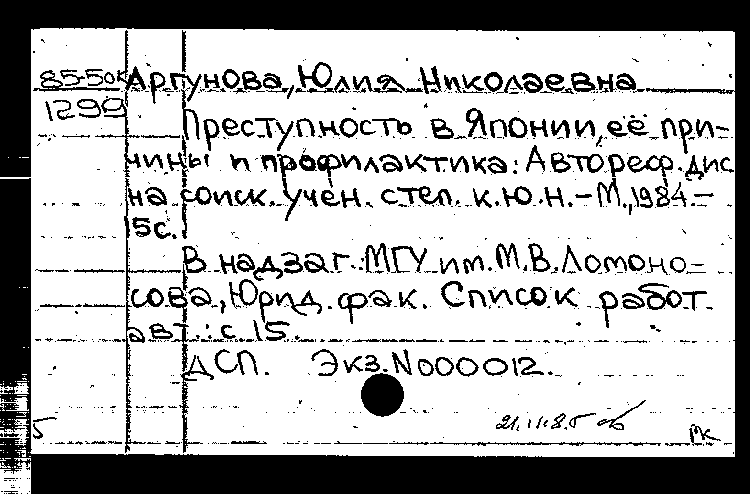 85-5ок Аргунова, Юлия Николаевна
1299
Преступность в Японии, её при-
чины и профилактика: Автореф. дис.
на соиск. учен. степ. к.ю.н. – М., 1984. –
15с.
В надзаг.: МГУ им. М.В. Ломоно-
сова, Юрид. фак. Список работ
авт.: с 15.
ДСП. Экз. N000012.
5
МК